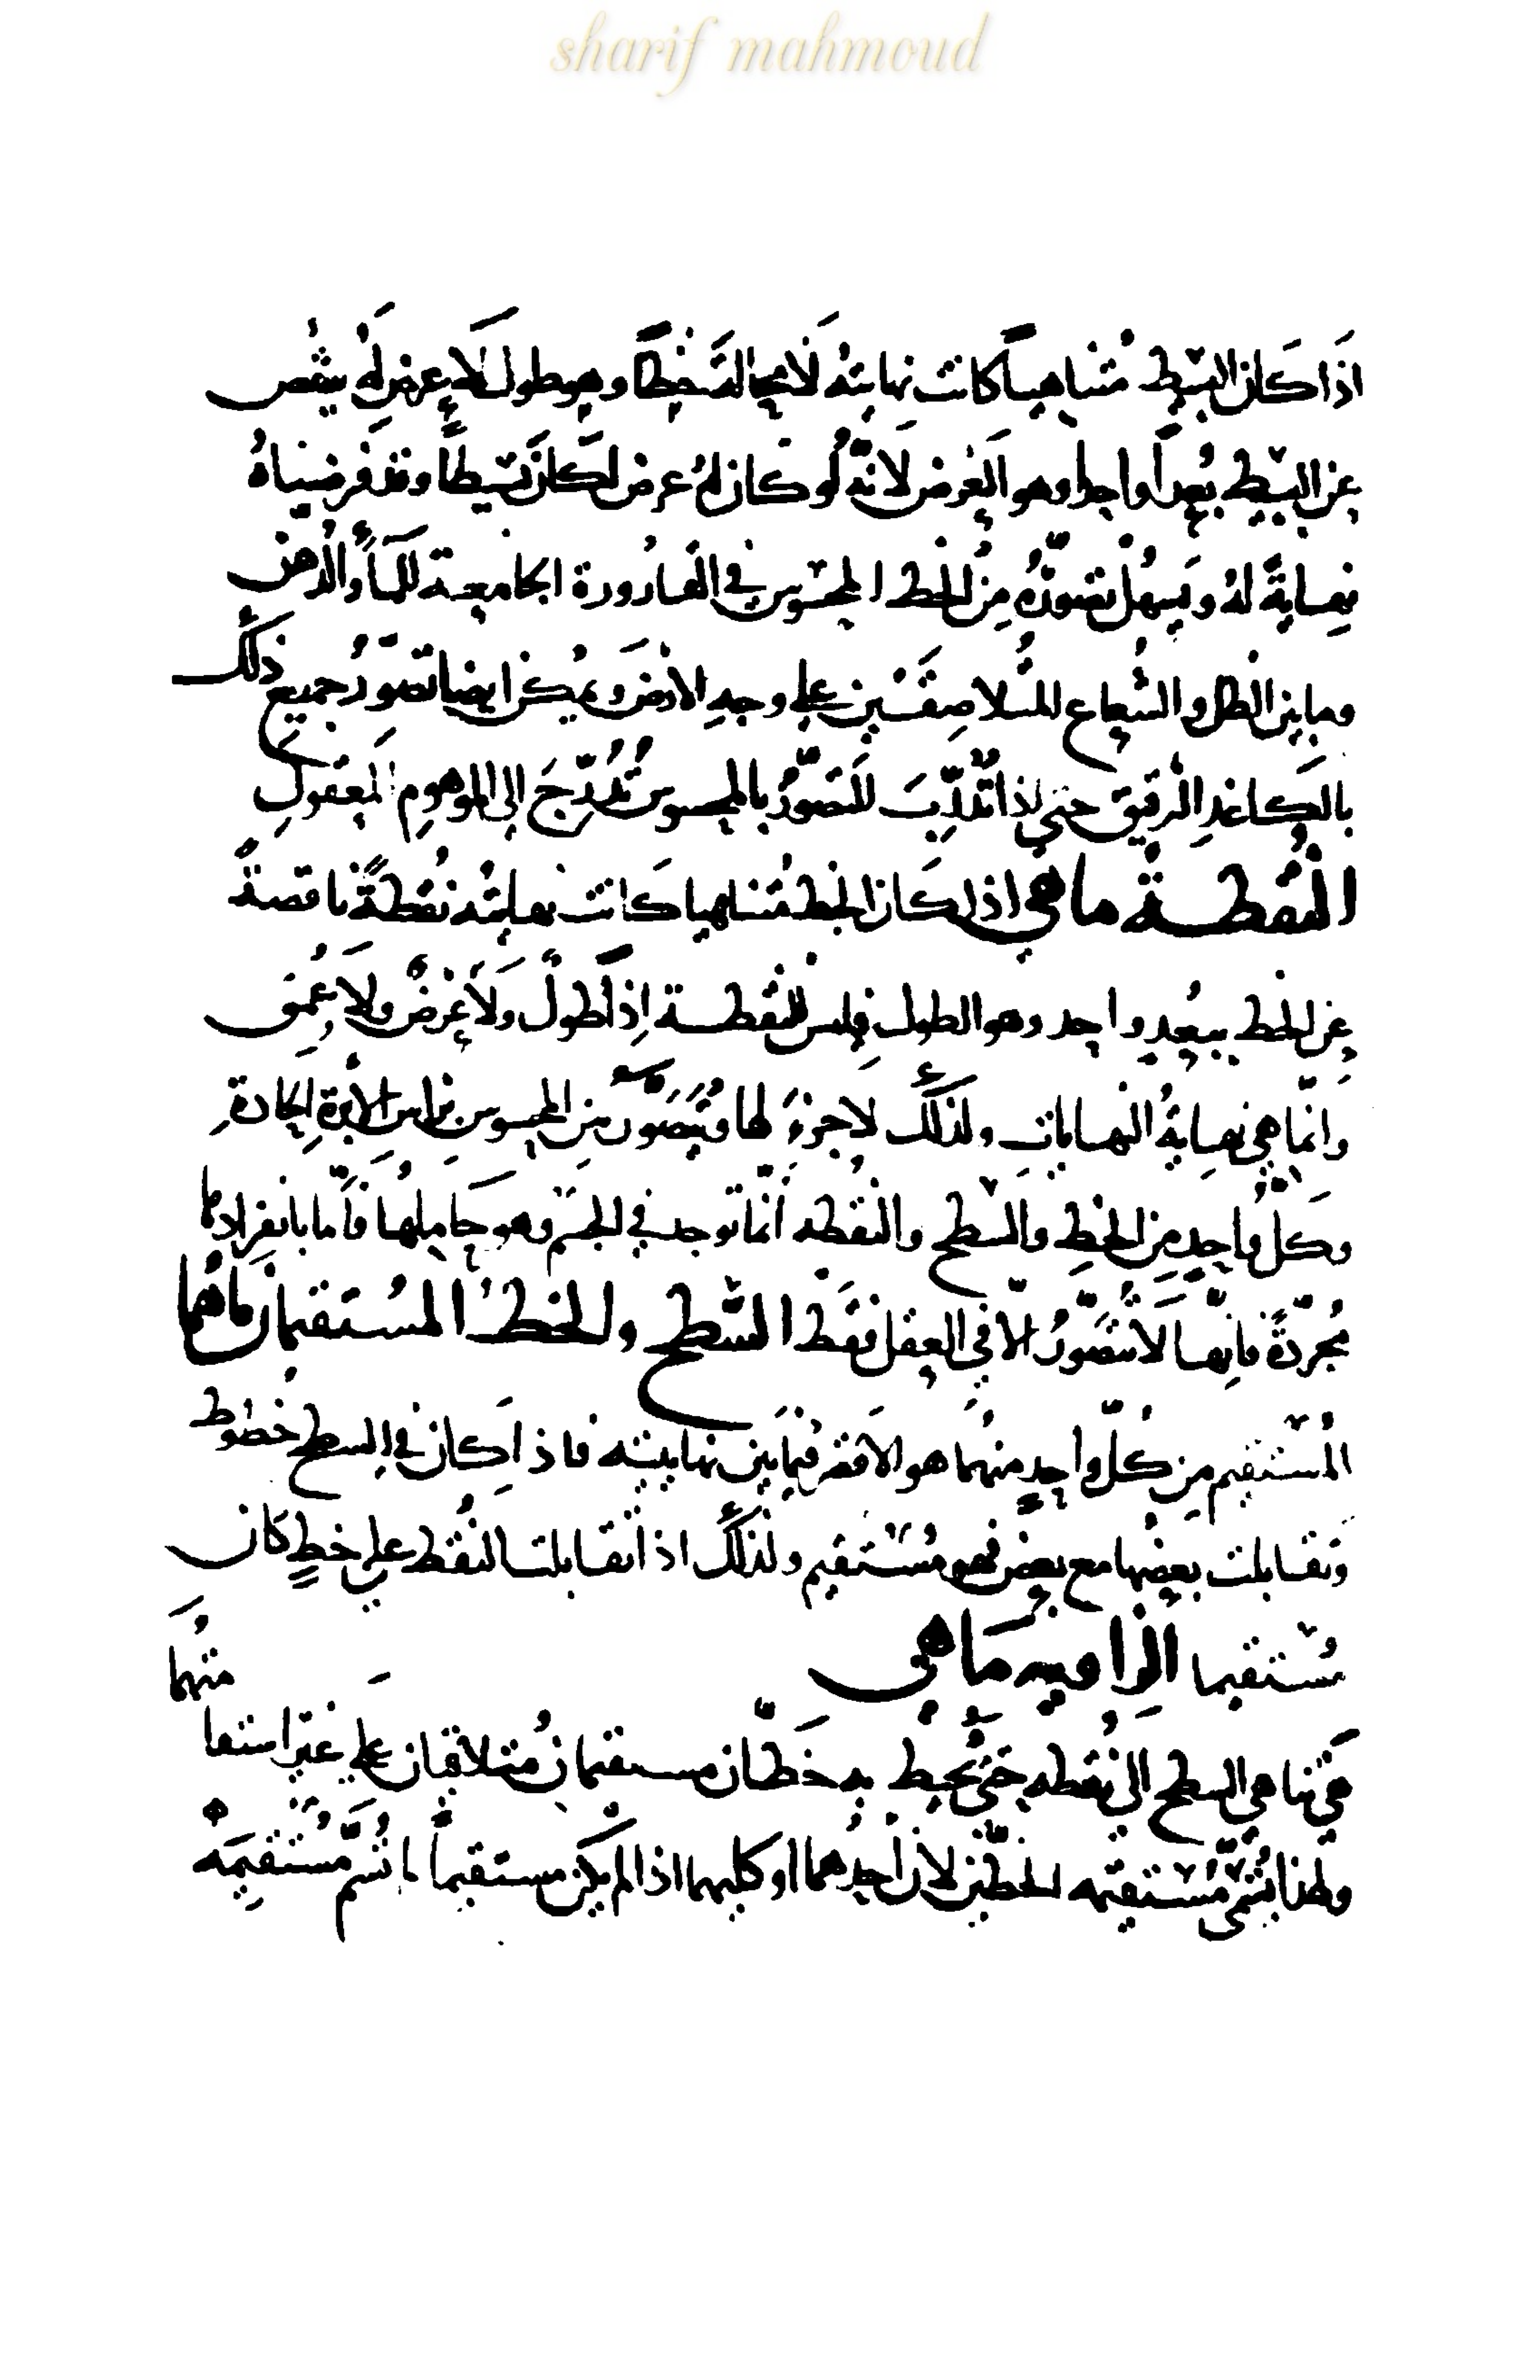 sharif mahmoud
اذَا كَانَ البسِيط مُتناهيًا كانت نهايتُهُ لَا محالة خطًّا وهو طول لَا عرض لَهُ ينقُص
عن البسِيط بُعدًا واحدا وهو العَرض لَانّه لو كان لهُ عرض لكان بَسيطًا وقد فرضناهُ
نهايةً لهُ ويَسهُل تصوّرُه مِن الخط المحسُوس في القارُورة الجامعة للماء والدُّهن
وما بين الظل والشُعاع المتلاصِقَين على وجهِ الارض ويُمكن ايضا تصوّرُ جميع ذلك
بالكاغدِ الرقيق حتى اذا تُدرِّبَ للتصوّرُ بالمحسوس تُدُرِّجَ الى الموهومِ المعقولِ
النُقطةُ ما هي اذا كان الخط مُتناهيا كانت نهايتُه نُقطةً ناقصةً
عن الخط ببُعدٍ واحد وهو الطول فليس للنقطة اِذًا طولٌ ولَا عَرضٌ ولَا عُمق
وانّما هي نهايةُ النهاياتِ ولذلك لا جزءَ لها وتُتصوّر من المحسوس براس الابرةِ الحادةِ
وكلُّ واحدٍ من الخطِ والسطح والنُقطه انّما توجد في الجسم وهو حاملها فأمّا بانفرادها
مُجرّدةً فانّها لا تتصوّرُ الّا في العقل فقط السَّطح والخط المُستقيمان ما هُما
المُستقيم مِن كلّ واحدٍ منهُما هو الاقصَر فيما بين نهايتيه فاذا كان في السطح خطوط
وتقابلت بعضُها مع بعض فهو مُستقيم ولذلك اذا تقابلت النُقط على خطٍ كان
مُستقيما الزاويه مَا هي
منهُما
هي تناهي السطح الى نُقطه حتى تُحيط به خطّان مستقيمان مُتلاقيان على غير استقا
ولهذا يُسمّى مُستقيمه الخطّين لانّ احدُهما او كليهما اذا لم يكن مستقيماً لم تُسمَّ مُستَقيمَه